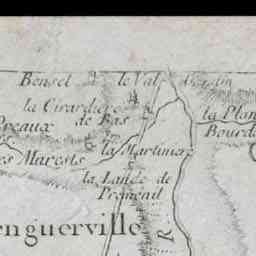 Bensel le Val
la Cirardiere la Plan
Preaux de Bas Bourd
es Marests la Martiniere
la Lande de
Premeail
nguerville
R